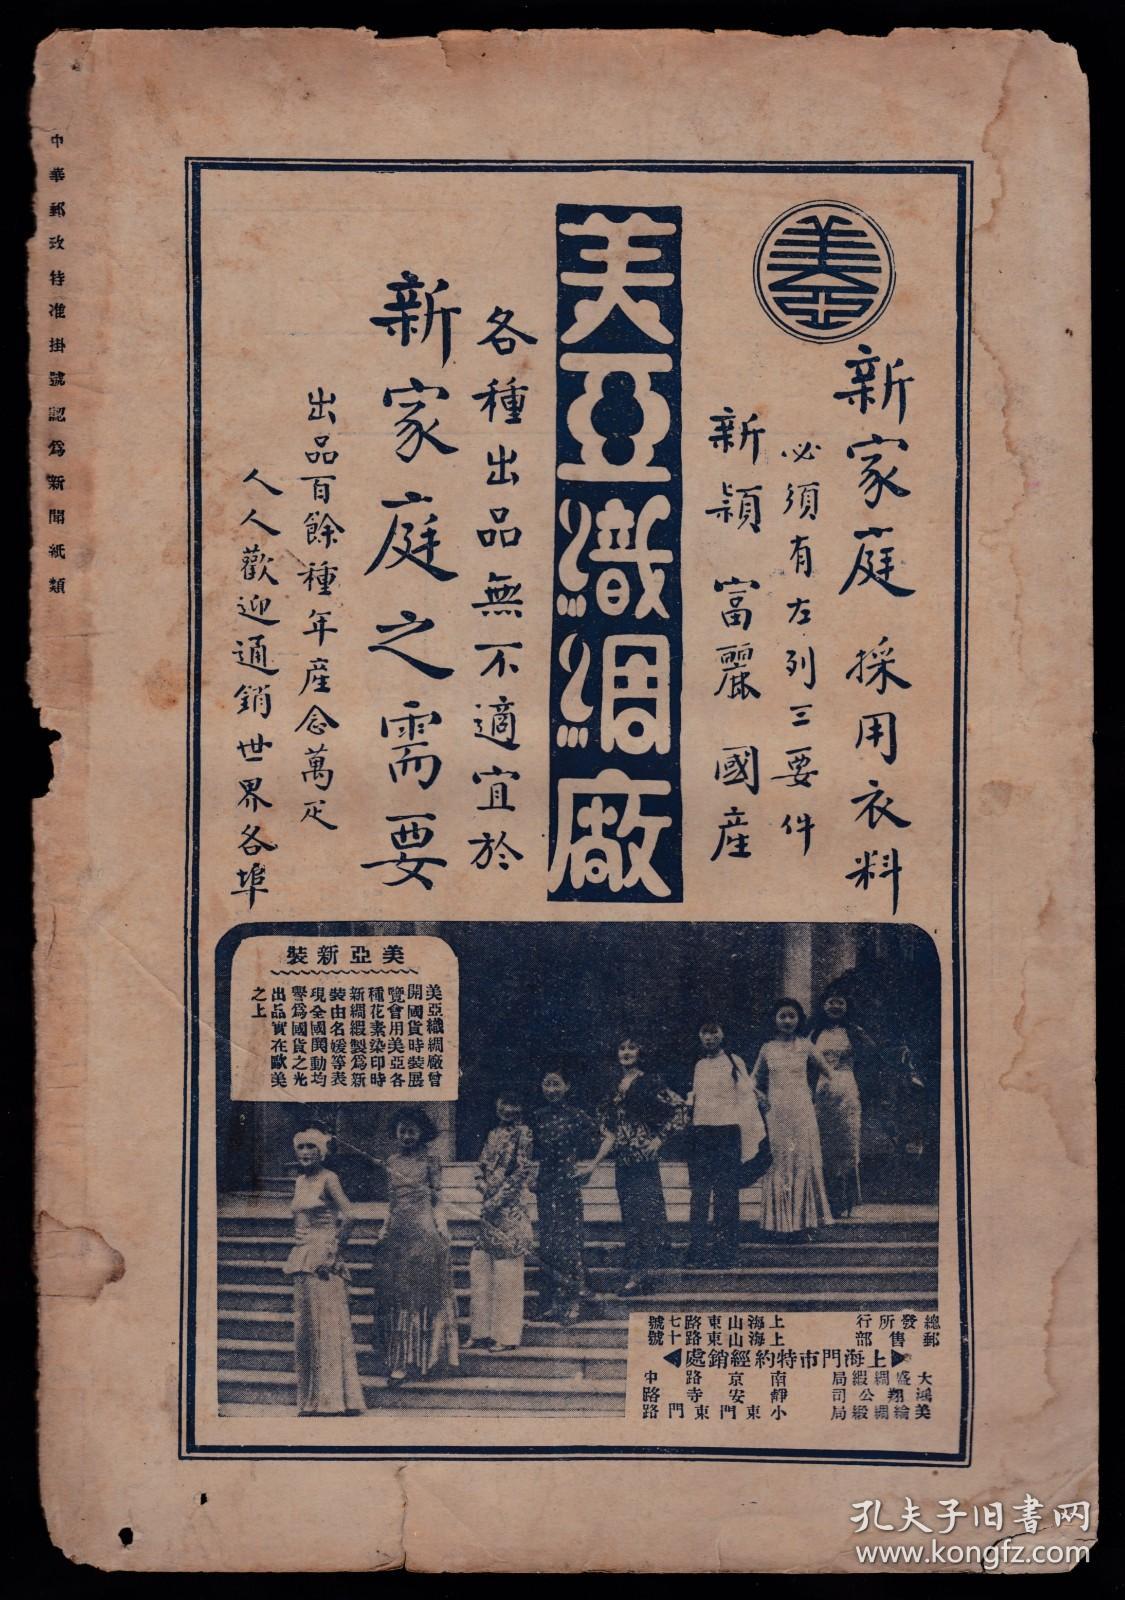 美亞
新家庭採用衣料
必須有左列三要件
新穎 富麗 國產
美亞織綢廠
各種出品無不適宜於
新家庭之需要
出品百餘種年產念萬疋
人人歡迎通銷世界各埠
中華郵政特准掛號認為新聞紙類
美亞新裝
美亞織綢廠曾
開國貨時裝展
覽會用美亞各
種花素染印時
新綢緞製為新
裝由名媛等表
現全國鬨動均
譽為國貨之光
出品實在歐美
之上
總發所行 上海山東路七號
郵售部 上海山東路十號
上海門市特約經銷處
大盛綢緞局 南京路中
鴻翔公司 靜安寺路
美綸綢緞局 小東門東門路
孔夫子旧書网
www.kongfz.com